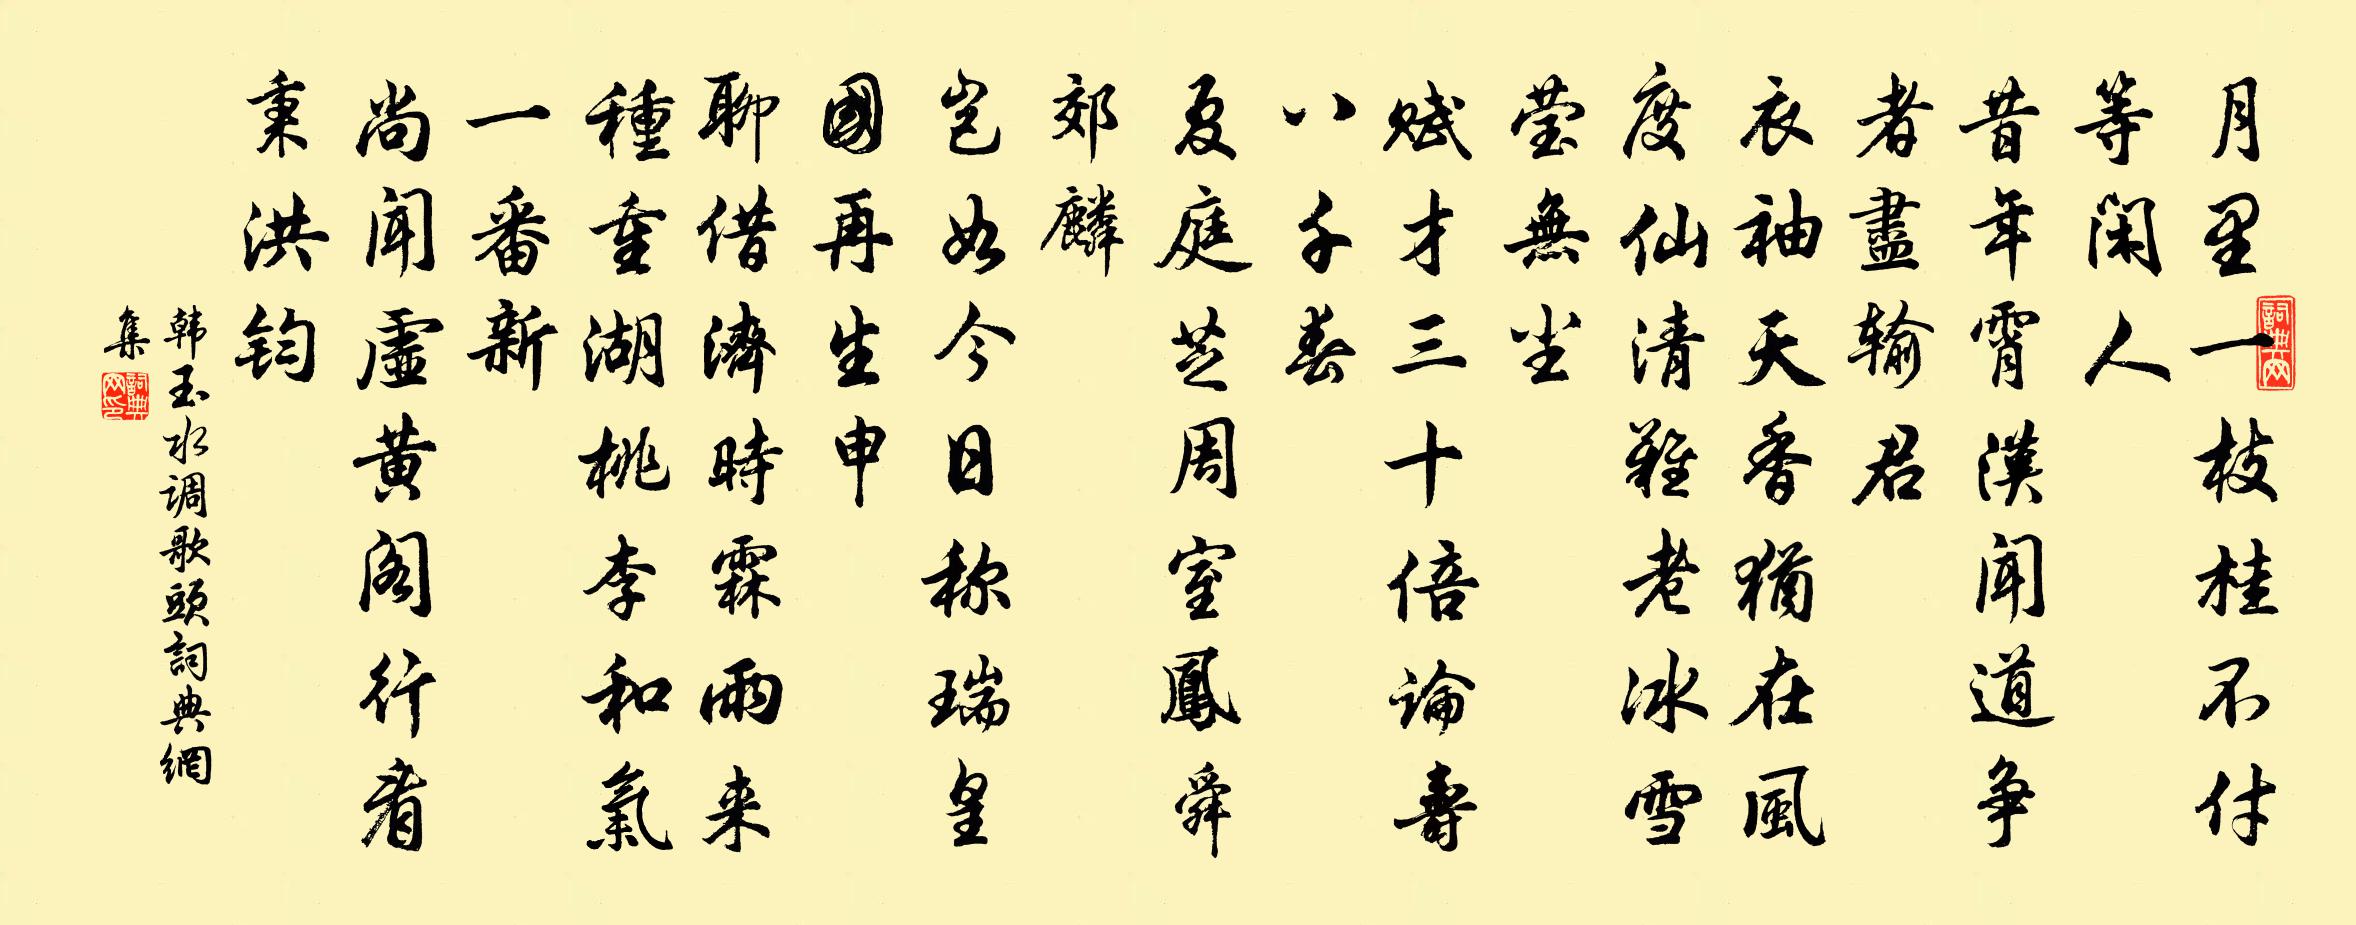 月里一枝桂不付
等闲人
昔年霄漢闻道争
者盡输君
衣袖天香猶在風
度仙清難老冰雪
莹無尘
赋才三十倍論壽
八千春
夏庭芝周室鳳舜
郊麟
岂如今日称瑞皇
國再生申
聊借濟時霖雨来
種重湖桃李和氣
一番新
尚闻虚黄阁行看
秉洪钧
韩玉水调歌頭詞典網
集
詞典网
詞典网印